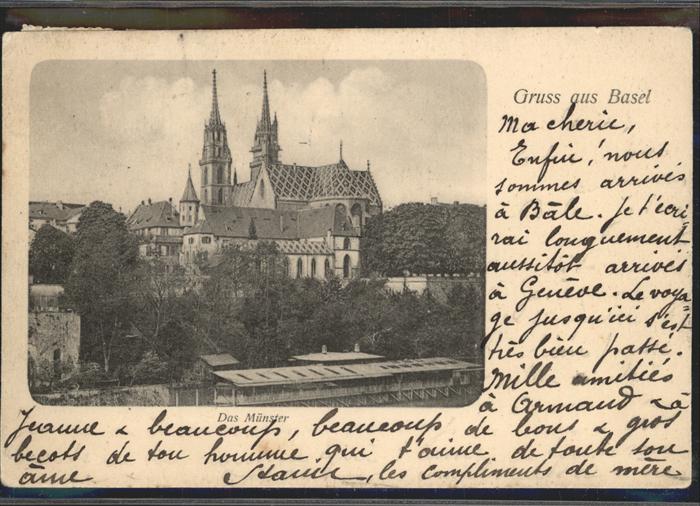 Gruss aus Basel
Ma cherie,
Enfin! nous
sommes arrivés
à Bâle. Je t'écri
rai longuement
aussitôt arrivés
à Genève. Le voya
ge jusqu'ici s'est
très bien passé.
Mille amitiés
à Armand & à
Das Münster
Jeanne & beaucoup, beaucoup de bons & gros
becots de ton homme qui t'aime de toute son
âme les compliments de mère